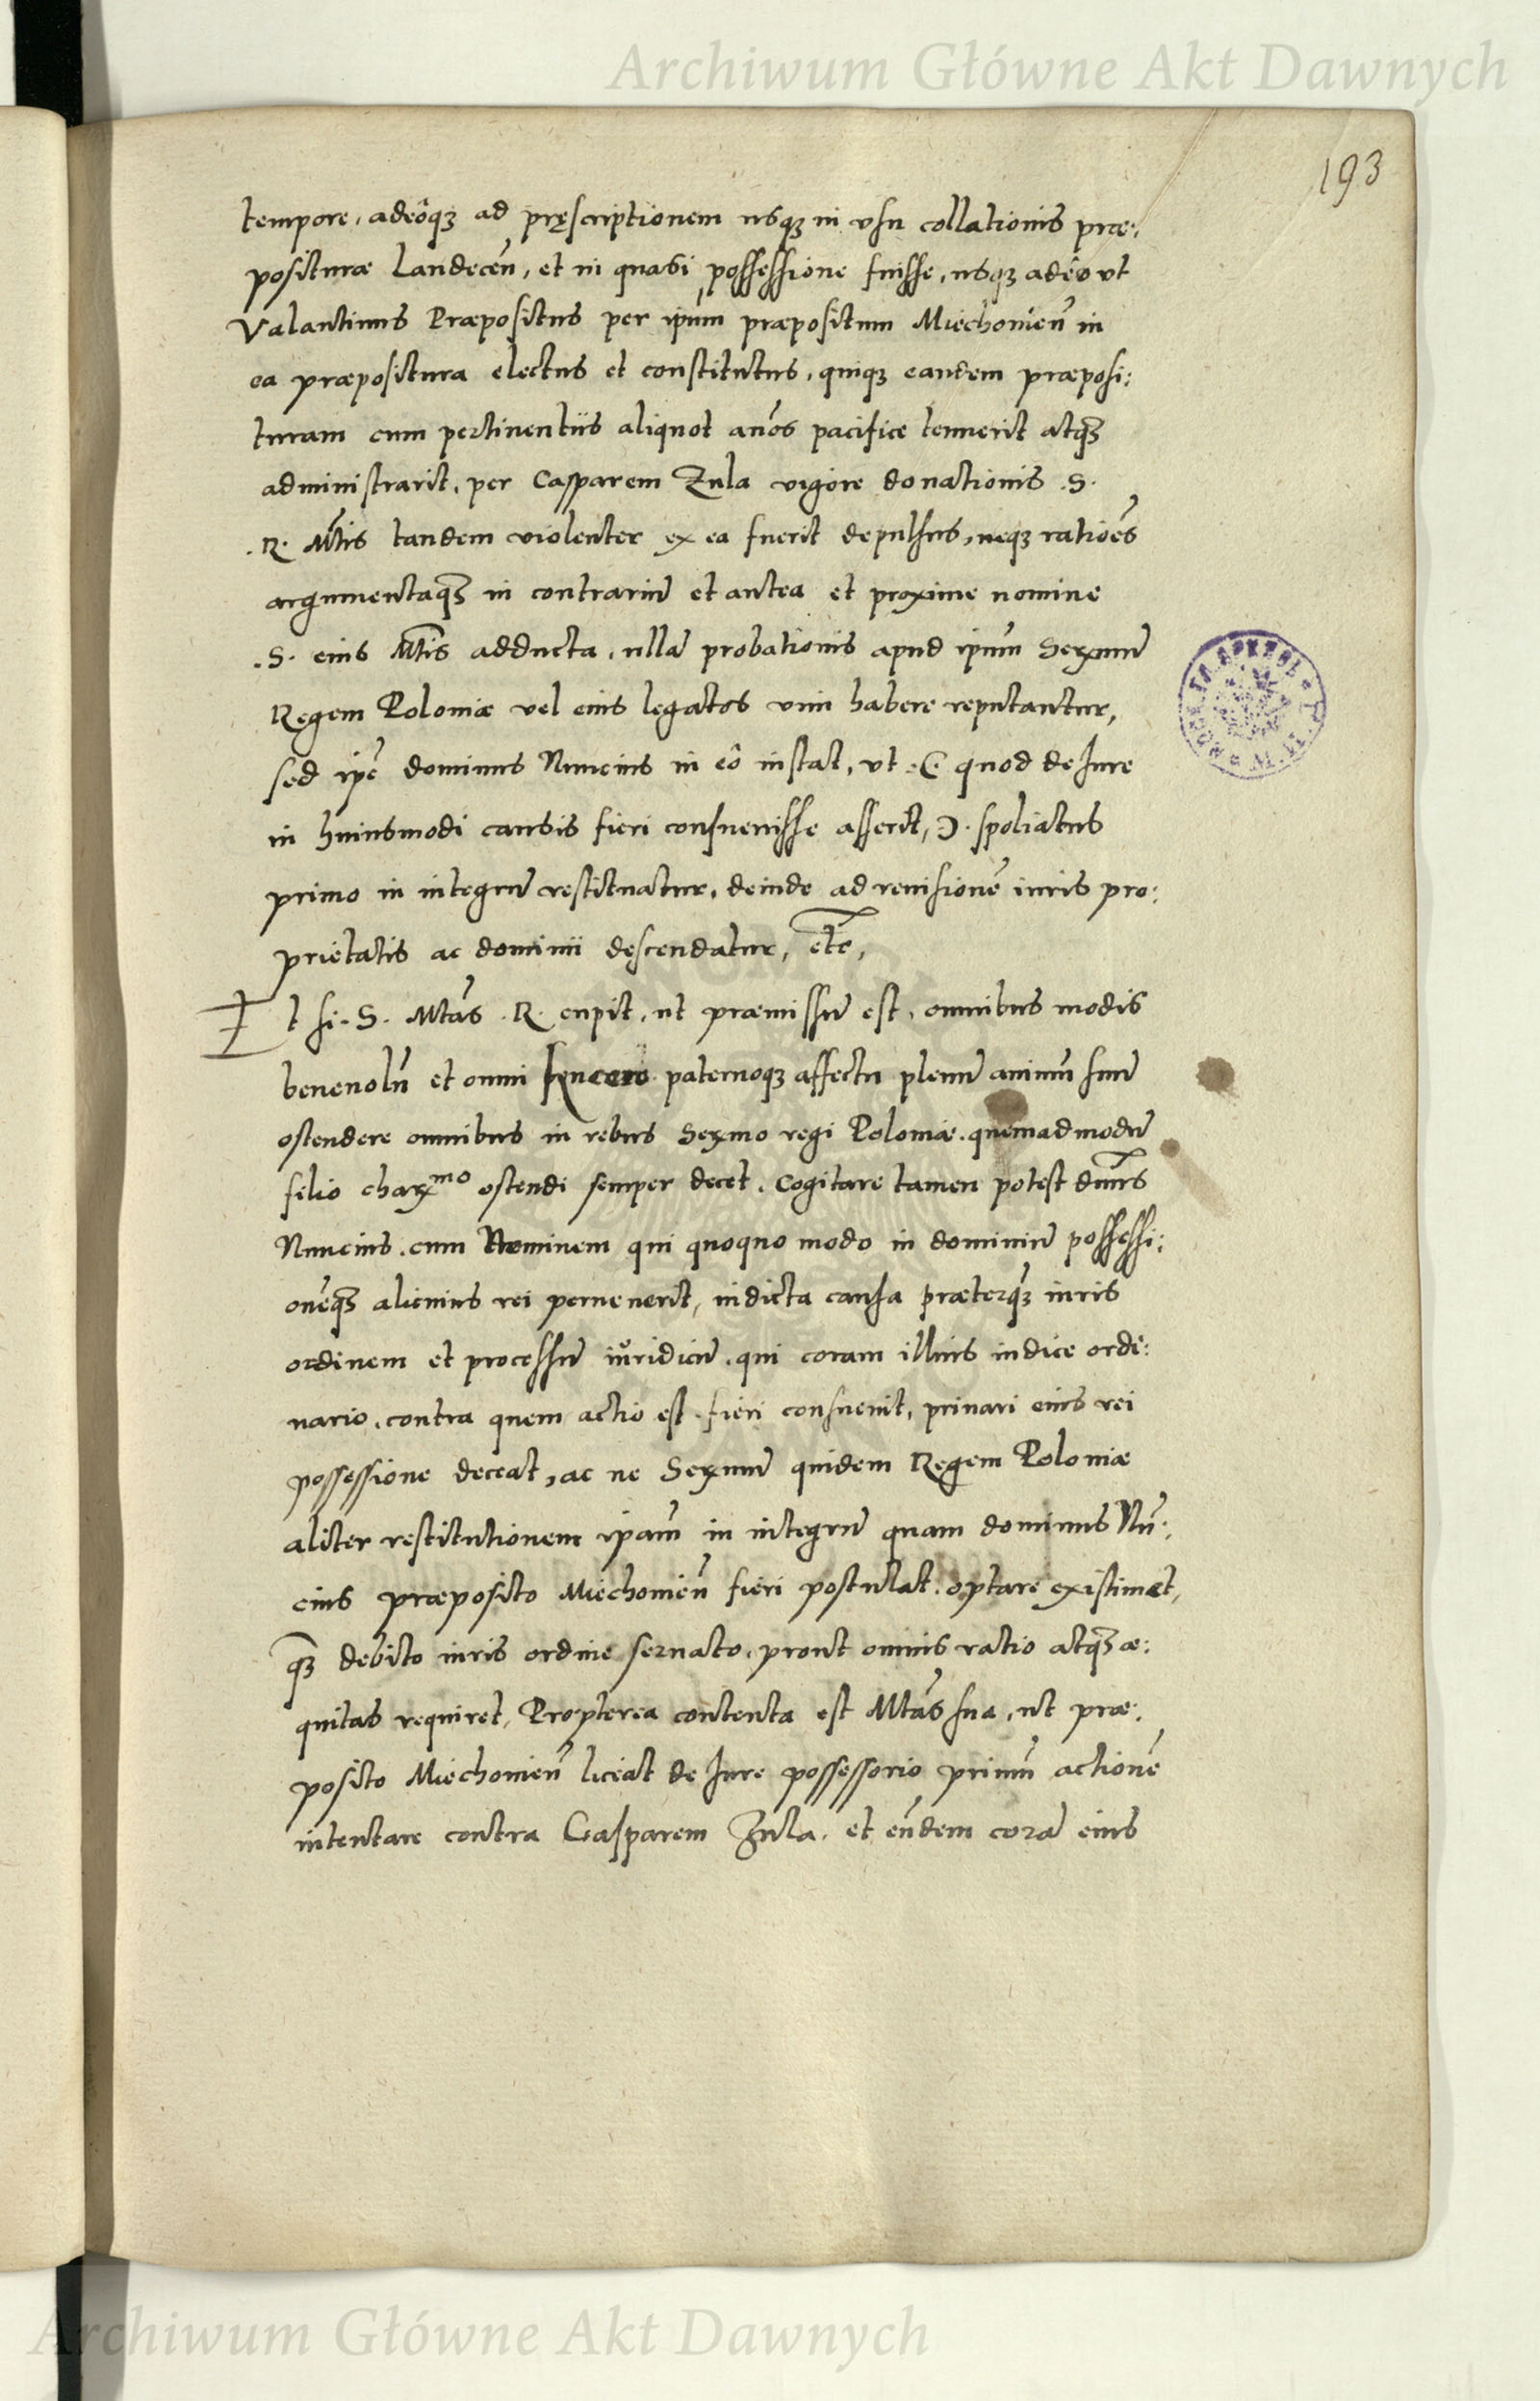 Archiwum Główne Akt Dawnych
193
tempore, adeôq3 ad pręscriptionem usq3 in vsu collationis præ:
posituræ Landeceñ, et in quasi possessione fuisse, usq3 adeô vt
Valantinus Præpositus per ipũm præpositum Miechouieñ in
ea præpositura electus et constitutus, quiq3 eandem præposi:
turam cum pertinentiis aliquot anõs pacifice tenuerit atq3
administrarit, per Casparem Zula vigore donationis .S.
.R. Mtis tandem violenter ex ea fuerit depulsus, neq3 ratiões
argumentaq3 in contrariũ et antea et proxime nomine
.S. eius Mtis adducta, ullã probationis apud ipũm Serxmũ
Regem Poloniæ vel eius legatos vim habere reputantur,
sed ipẽ dominus Nuncius in eô instat, vt .C. quod de Iure
in huiusmodi causis fieri consueuisse asserit, Ɔ. spoliatus
primo in integrũ restituatur, deinde ad reuisionẽ iuris pro:
prietatis ac dominii descendatur, etc,
Et si .S. Mtãs .R. cupit, ut præmissũ est, omnibus modis
beneuolũ et omni syncero paternoq3 affectu plenũ animũ suũ
ostendere omnibus in rebus Serxmo regi Poloniæ, quemadmodũ
filio charxmo ostendi semper decet. Cogitare tamen potest dnus
Nuncius, cum Neminem qui quoquo modo in dominiũ possessi:
onẽq3 alicuius rei peruenerit, indicta causa præterq3 iuris
ordinem et processũ iuridicũ, qui coram illius iudice ordi:
nario, contra quem actio est, fieri consueuit, priuari eius rei
possessione deceat, ac ne Serxmũ quidem Regem Poloniæ
aliter restitutionem ipãm in integrũ quam dominus Nũ:
cius præposito Miechouieñ fieri postulat, optare existimet,
q3 debito iuris ordine seruato, prout omnis ratio atq3 æ:
quitas requiret, Propterea contenta est Mtãs sua, ut præ:
posito Miechouieñ liceat de Iure possessorio primũ actionẽ
intentare contra Casparem Zula, et eũdem corã eius
Archiwum Główne Akt Dawnych